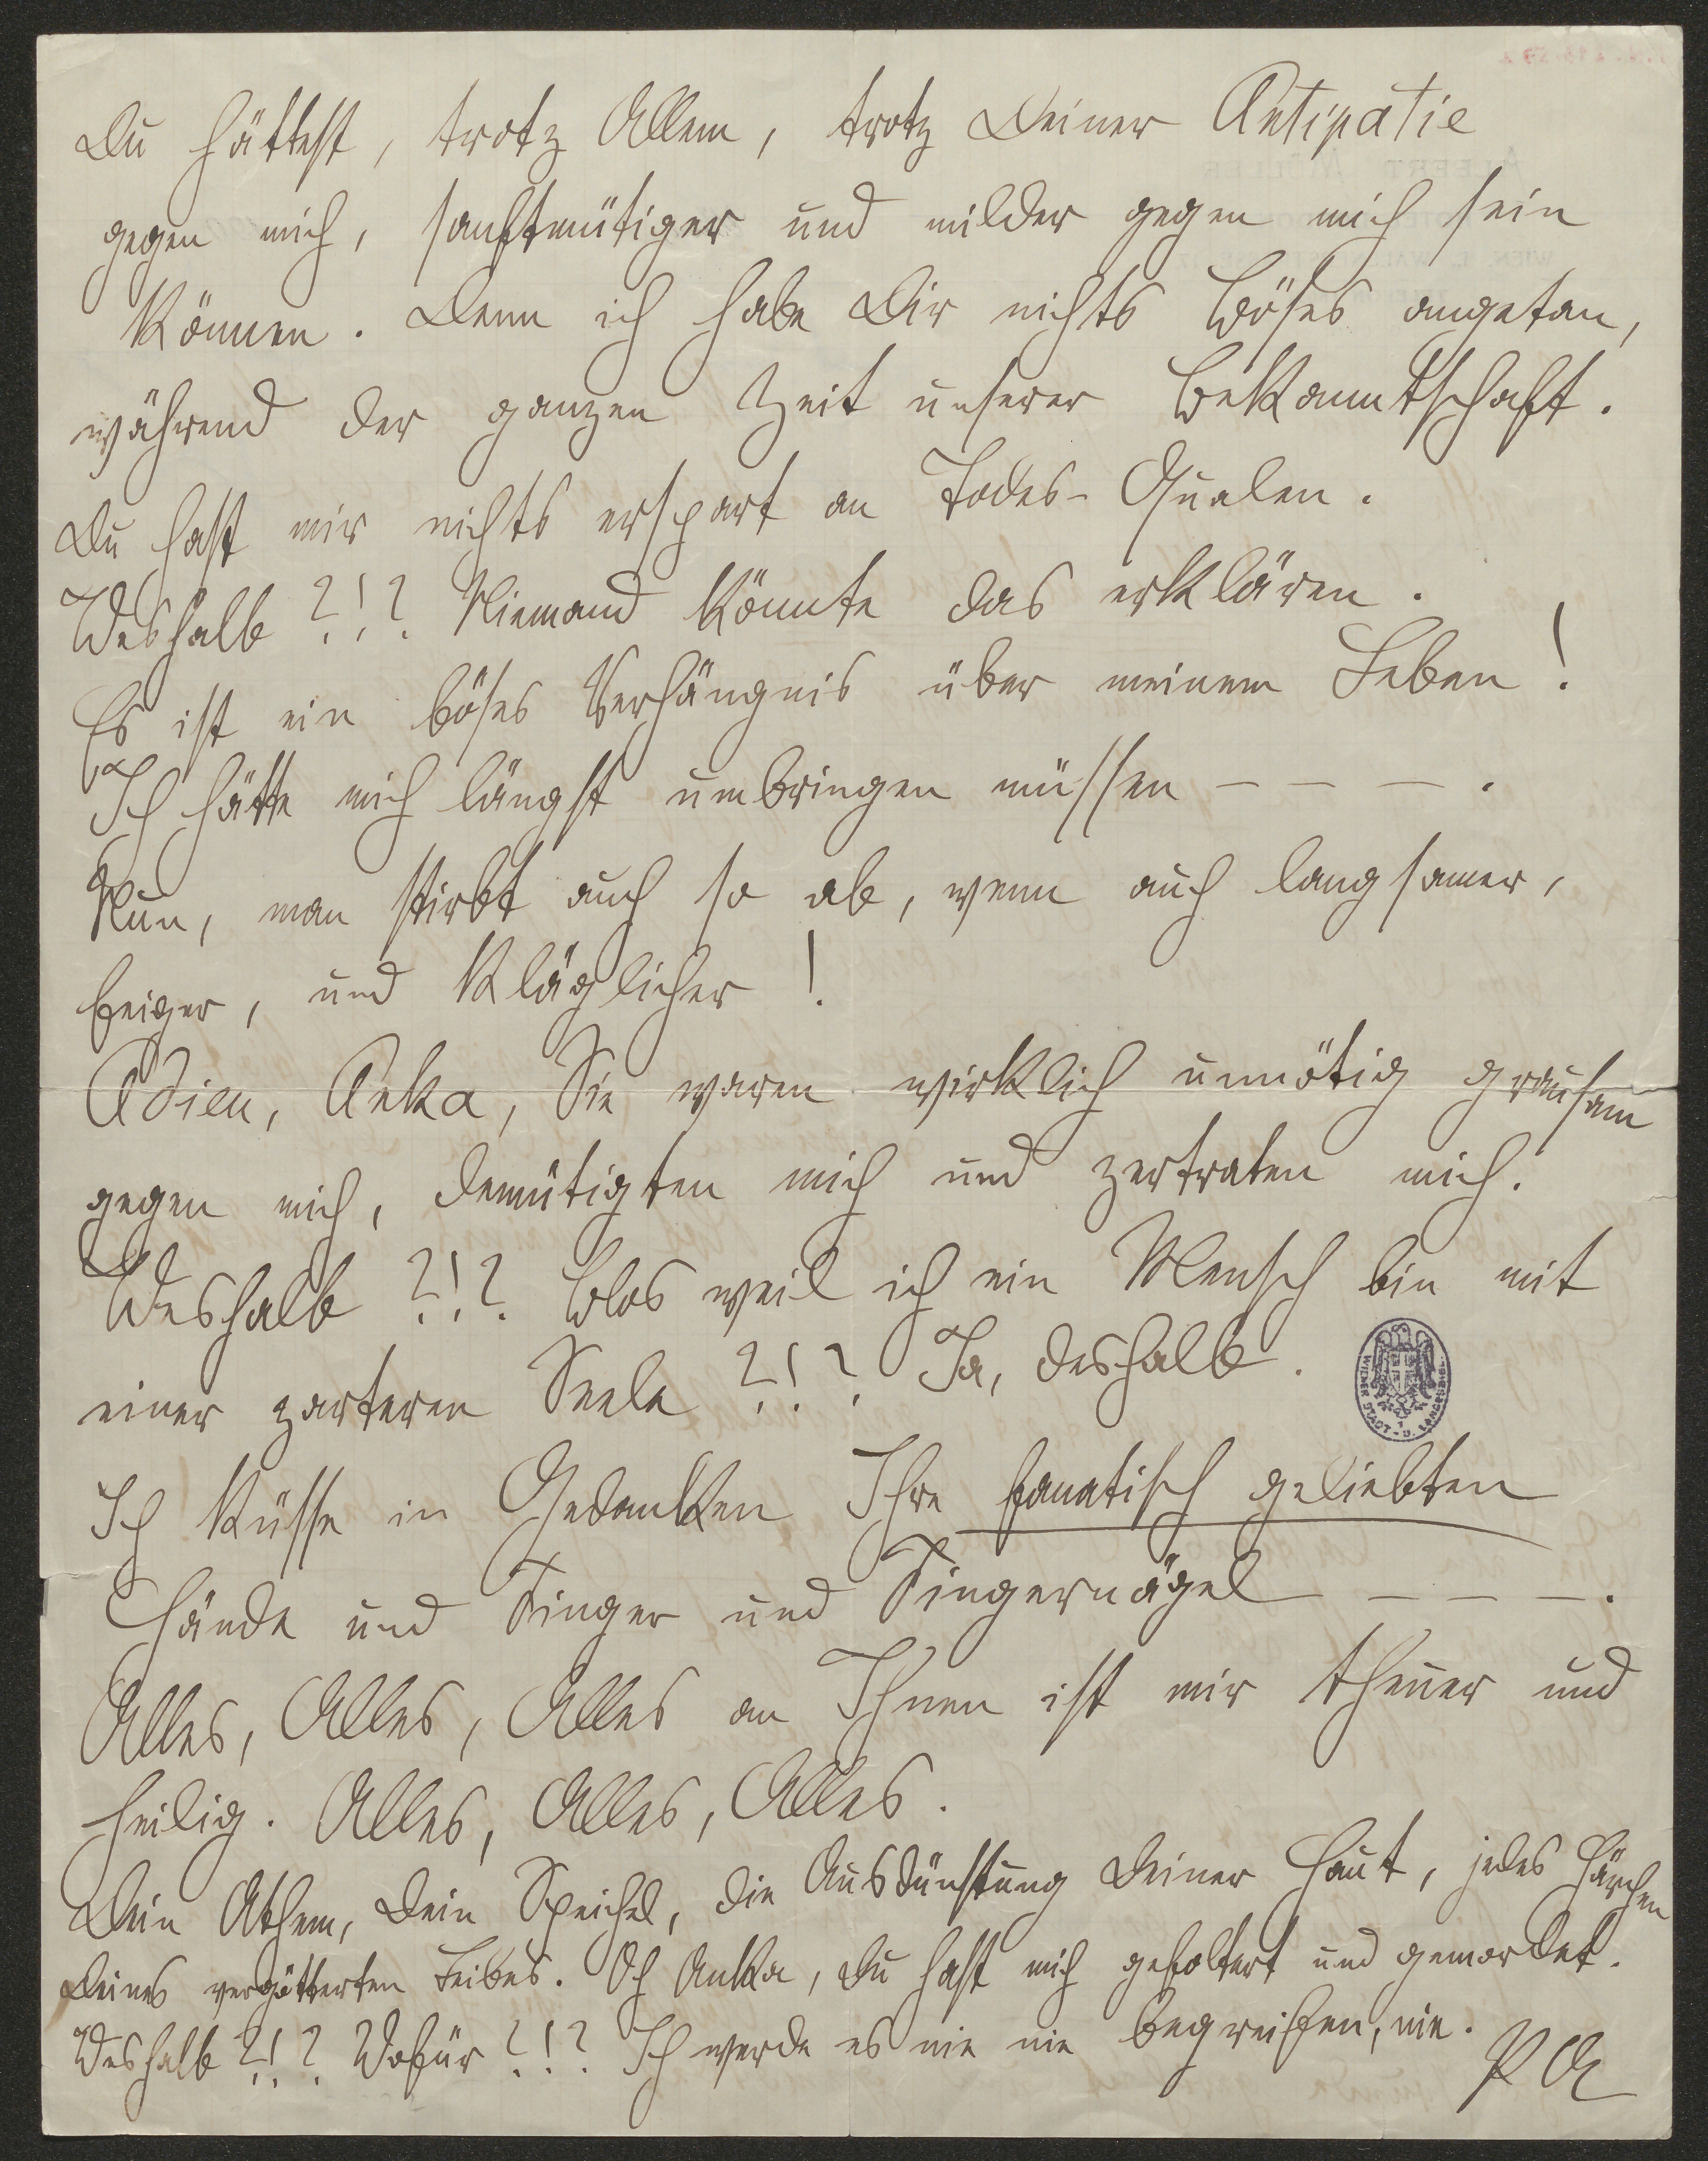 Du hättest, trotz Allem, trotz Deiner Antipatie
gegen mich, sanftmütiger und milder gegen mich sein
können. Denn ich habe Dir nichts Böses angetan,
während der ganzen Zeit unserer Bekanntschaft.
Du hast mir nichts erspart an Todes-Qualen.
Weshalb ?!? Niemand könnte das erklären.
Es ist ein böses Verhängnis über meinem Leben!
Ich hätte mich längst umbringen müssen – – – .
Nun, man stirbt auch so ab, wenn auch langsamer,
feiger, und kläglicher!
Adieu, Anka, Sie waren wirklich unnötig grausam
gegen mich, demütigten mich und zertraten mich.
Weshalb ?!? Blos weil ich ein Mensch bin mit
einer zarteren Seele ?!? Ja, deshalb.
WIENER STADT- U. LANDESBIBL.
Ich küsse in Gedanken Ihre fanatisch geliebten
Hände und Finger und Fingernägel – – – – .
Alles, Alles, Alles an Ihnen ist mir theuer und
heilig. Alles, Alles, Alles.
Dein Athem, Dein Speichel, die Ausdünstung Deiner Haut, jedes Härchen
Deines vergötterten Leibes. Oh Anka, Du hast mich gefoltert und gemordet.
Weshalb ?!? Wofür ?!? Ich werde es nie nie begreifen, nie.
PA